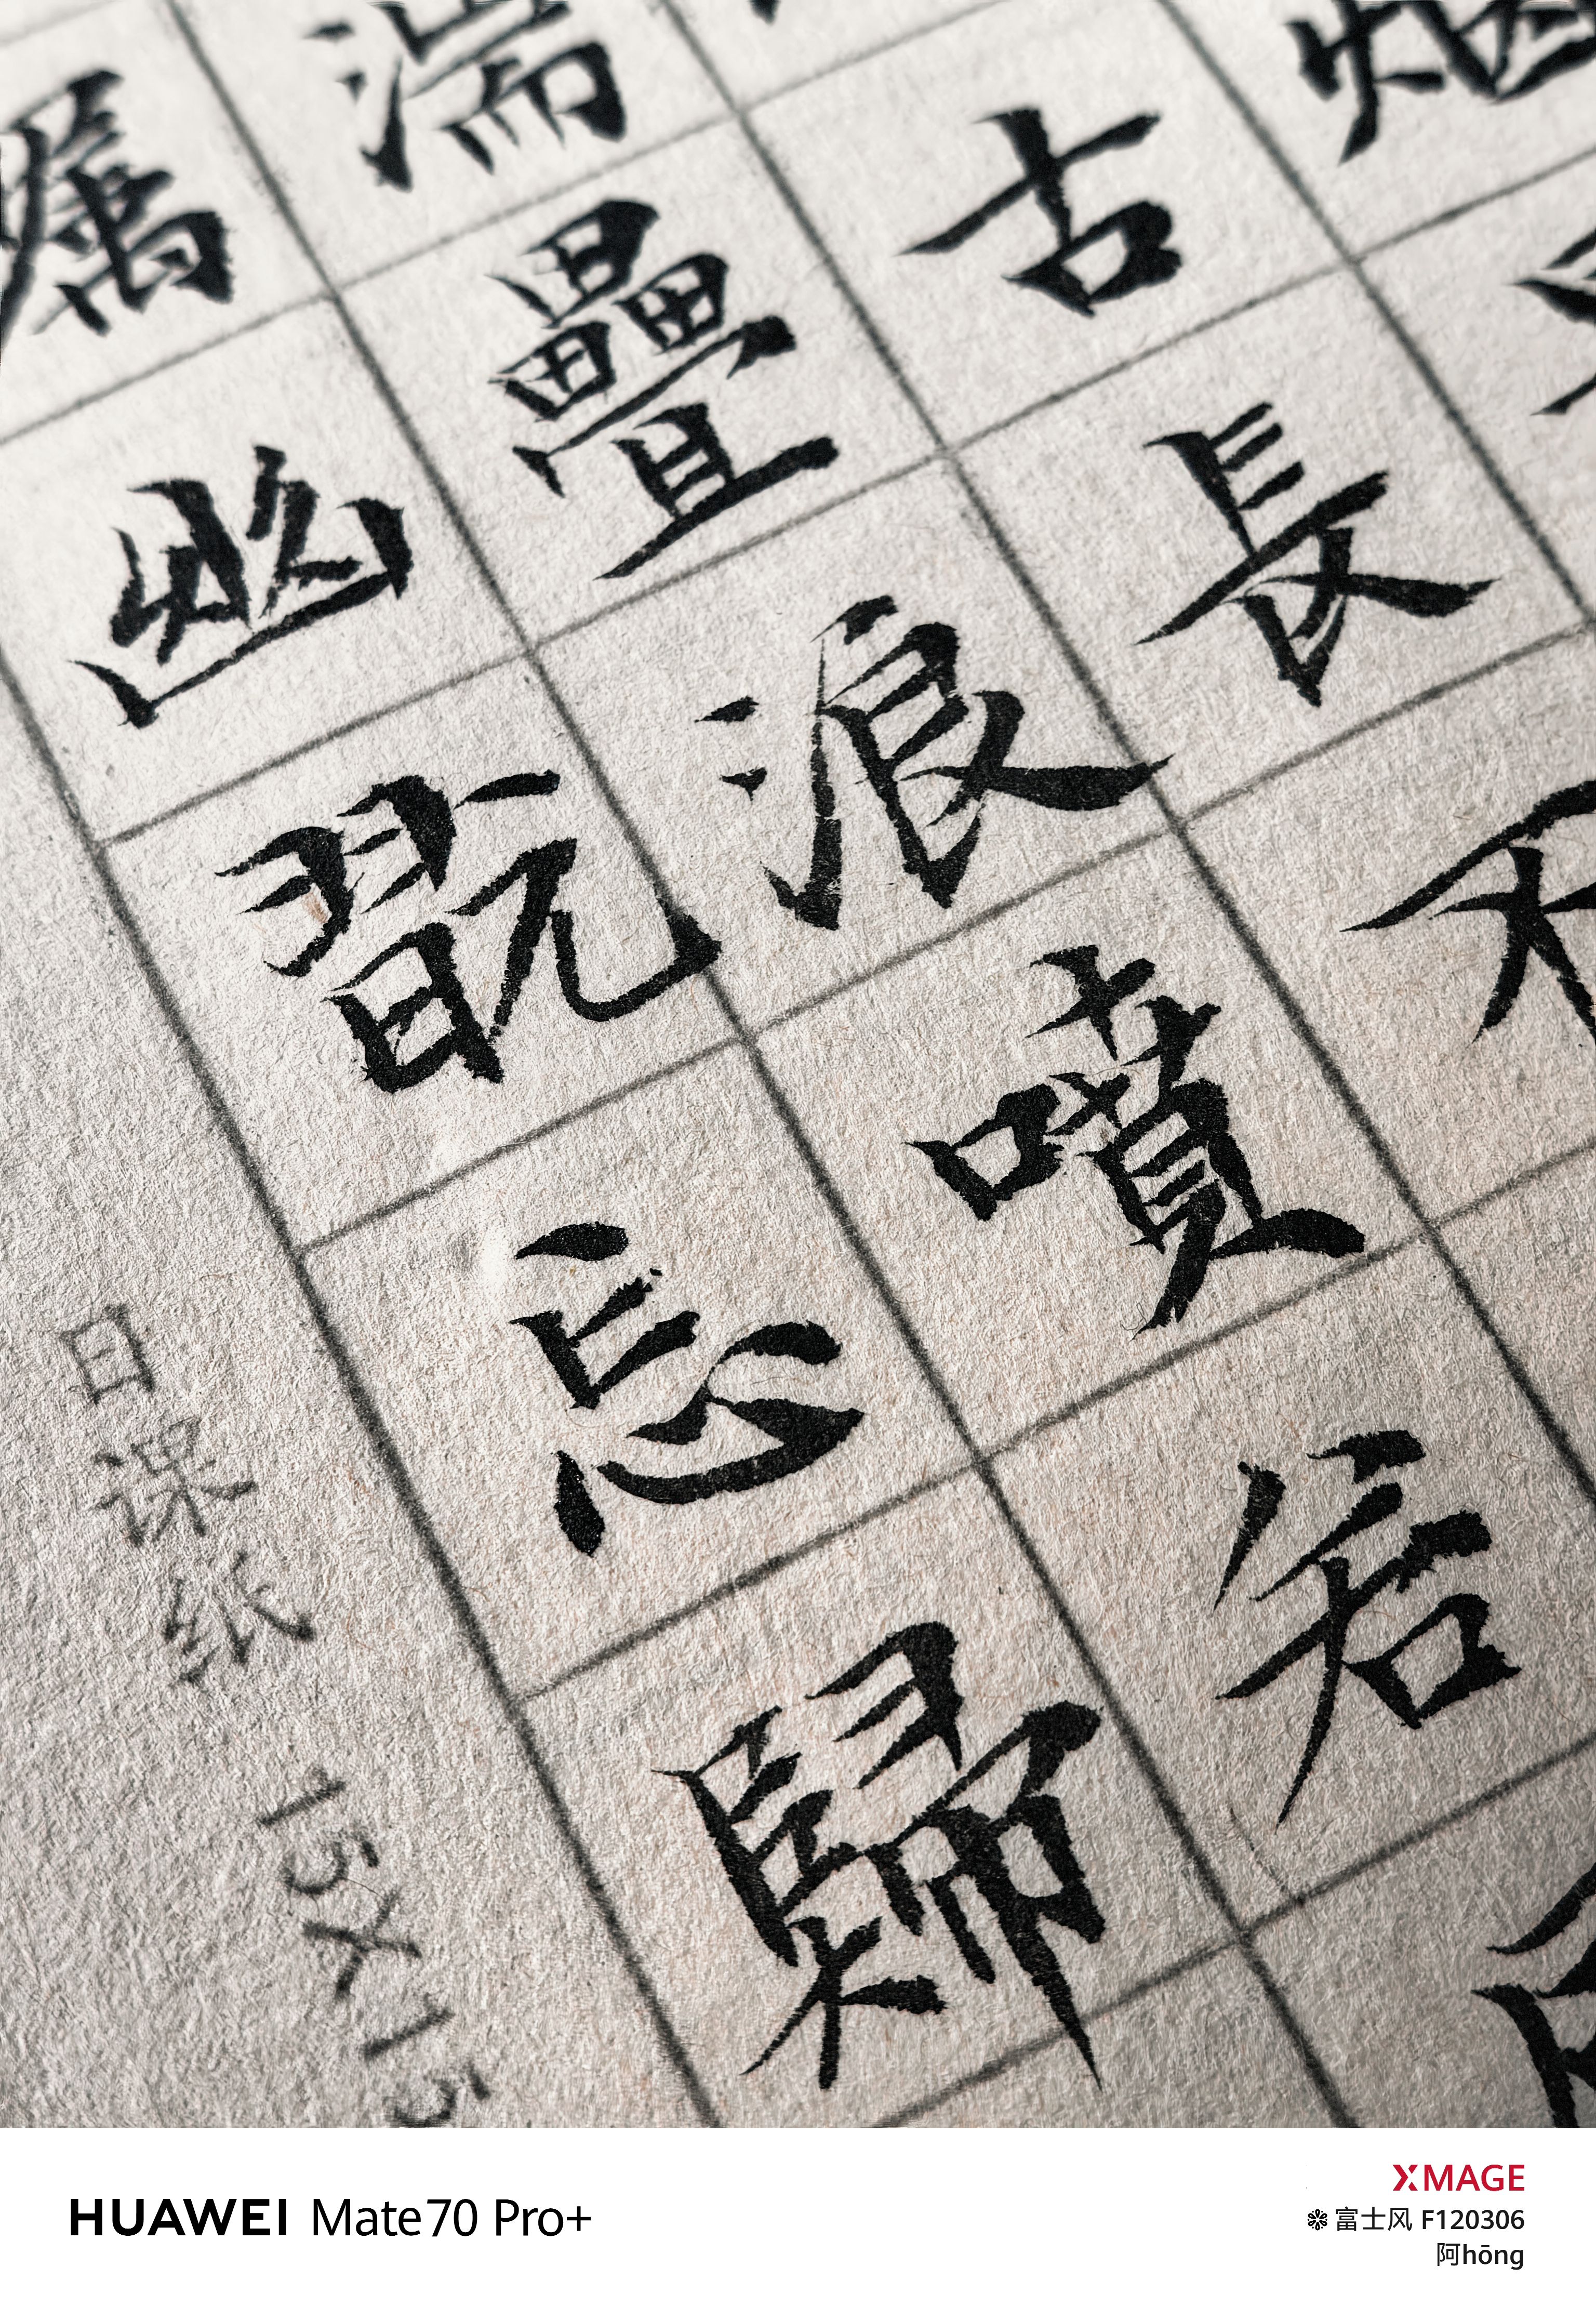 烟
古長
湍疊浪噴
属幽翫忘歸
日课纸 15X15
HUAWEI Mate70 Pro+
XMAGE
富士风 F120306
阿hōng